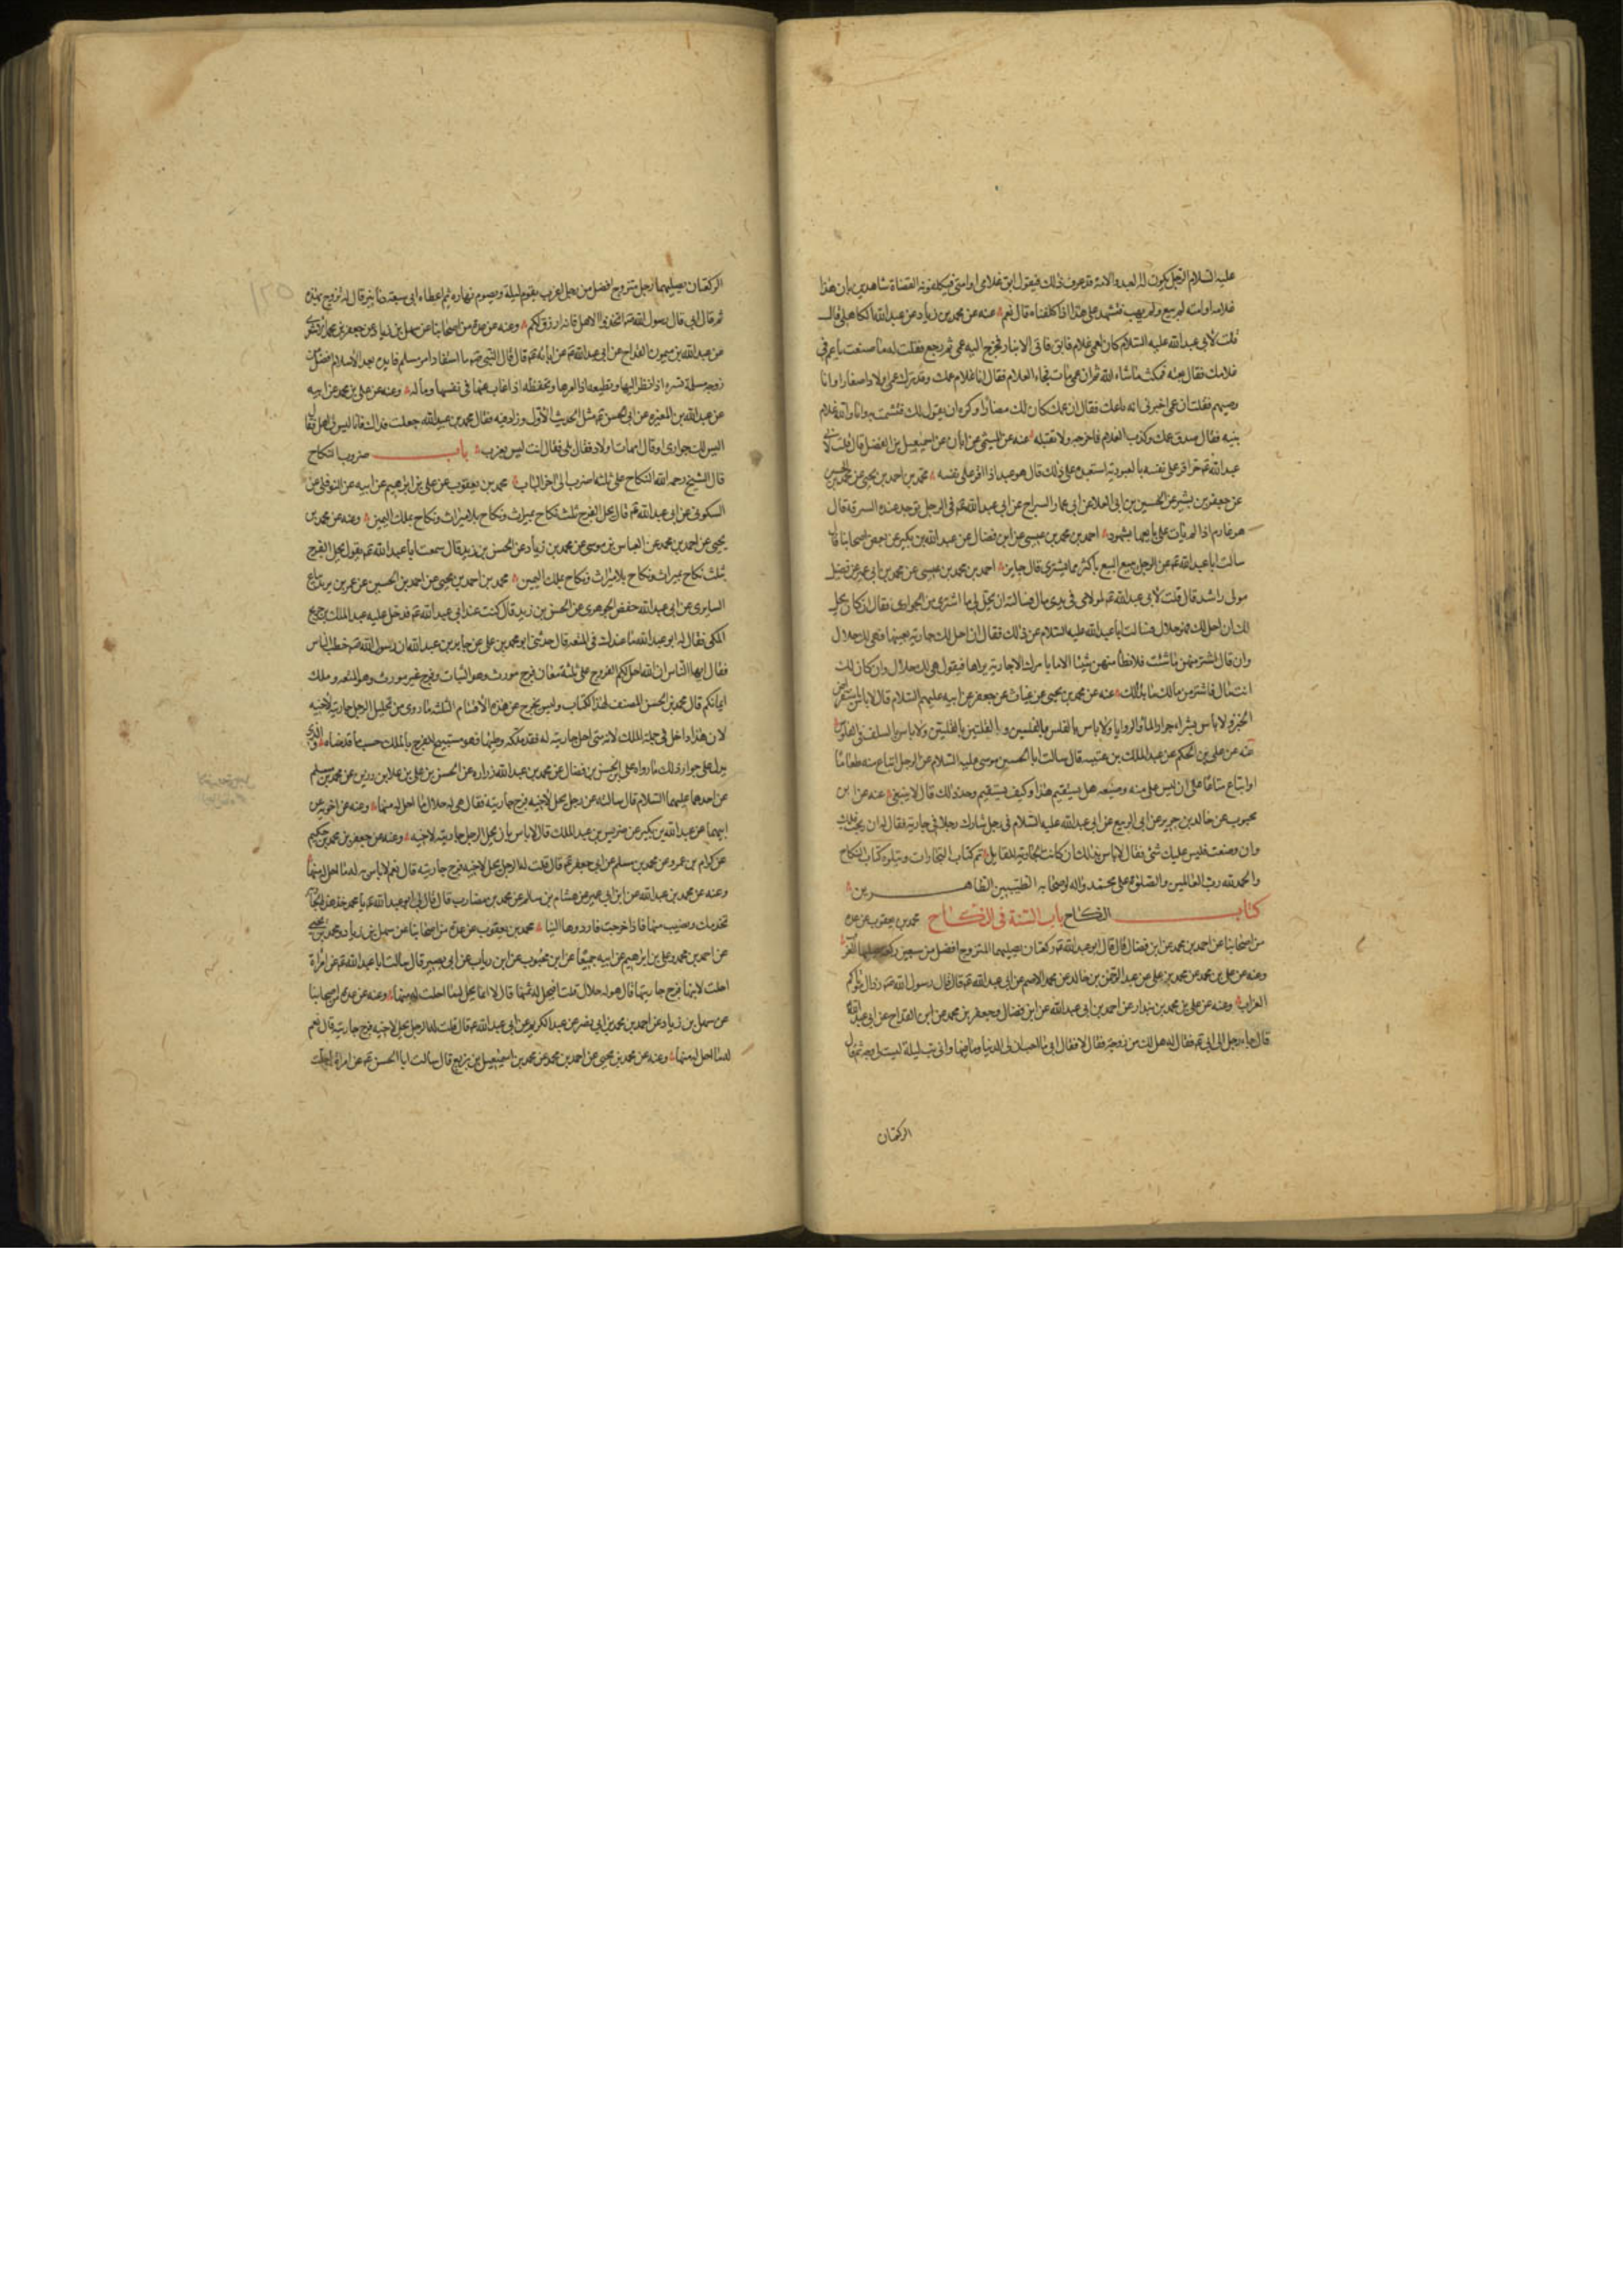 عليه السلام الرجل يكون له العبد والامة قد عرف ذلك فيقول ابق غلامى او امتى فيكلفونه القضاة شاهدين بان هذا
غلامه او امته لم يبع ولم يهب فنشهد على هذا اذا كلفناه قال نعم عنه عن محمد بن زياد عن عبد الله الكاهلى قال
قلت لأبى عبد الله عليه السلام كان لعمى غلام فابق فاتى الانبار فخرج اليه عمى ثم رجع فقلت له ما صنعت يا عم فى
غلامك فقال بعته فمكث ما شاء الله ثم ان عمى مات فجاء الغلام فقال انا غلام عمك وقد ترك عمى اولادا صغارا وانا
وصيهم فقلت ان عمى اخبرنى انه باعك فقال ان عمك كان لك مضارا وكره ان يقول لك فتشمت به وانا والله غلام
بنيه فقال صدق عمك وكذب الغلام فاخرجه ولا تقبله عنه عن الميثمى عن ابان عن اسمعيل بن الفضل قال سألت ابا
عبد الله عم حر اقر على نفسه بالعبودية استعبده على ذلك قال هو عبد اذا اقر على نفسه محمد بن احمد بن يحيى عن محمد بن الحسين
عن جعفر بن بشير عن الحسين بن ابى العلا عن ابى عمار السراج عن ابى عبد الله عم فى الرجل توجد عنده السرقة قال
هو غارم اذا لم يأت على بايعها بشهود احمد بن محمد بن عيسى عن ابن فضال عن عبد الله بن بكير عن بعض اصحابنا قال
سالت ابا عبد الله عم عن الرجل يبيع البيع باكثر مما يشترى قال جايز احمد بن محمد بن عيسى عن محمد بن ابى عمير عن فضيل
مولى راشد قال قلت لأبى عبد الله عم لمولاى فى يدى مال فسالته ان يحل لى ما اشترى من الجوارى فقال ان كان يحل
لك ان احل لك فهو حلال فسالت ابا عبد الله عليه السلام عن ذلك فقال ان احل لك جارية بعينها فهى لك حلال
وان قال اشتر منهن ما شئت فلا تطأ منهن شيئا الا ما يأمرك الا جارية يراها فيقول هى لك حلال وان كان لك
انت مال فاشتر من مالك ما بدا لك عنه عن محمد بن يحيى عن غياث عن جعفر عن ابيه عليهم السلام قال لا باس باستقراض
الخبز ولا باس بشراء جرار الماء والروايا ولا باس بالفلس بالفلسين وبالقلتين بالقلتين ولا باس بالسلف فى الفلوس
عنه عن على بن الحكم عن عبد الملك بن عتبة قال سالت ابا الحسين موسى عليه السلام عن الرجل ابتاع منه طعاما
او ابتاع متاعا على ان ليس على منه وضيعه هل يستقيم هذا وكيف يستقيم وحد ذلك قال لا ينبغى عنه عن ابن
محبوب عن خالد بن جرير عن ابى الربيع عن ابى عبد الله عليه السلام فى رجل شارك رجلا فى جارية فقال له ان ربحت فلك
وان وضعت فليس عليك شئ فقال لا باس بذلك ان كانت الجارية للقايل تم كتاب التجارات ويتلوه كتاب النكاح
والحمد لله رب العالمين والصلوة على محمد واله واصحابه الطيبين الطاهرين
كتاب النكاح باب السنة فى النكاح محمد بن يعقوب عن عدة
من اصحابنا عن احمد بن محمد عن ابن فضال قال قال ابو عبد الله عم ركعتان يصليهما المتزوج افضل من سبعين ركعة يصليها العزب
وعنه عن على بن محمد عن محمد بن على عن عبد الرحمن بن خالد عن محمد الاصم عن ابى عبد الله عم قال قال رسول الله صم رذال موتاكم
العزاب وعنه عن على بن محمد بن بندار عن احمد بن ابى عبد الله عن ابن فضال وجعفر بن محمد عن ابن القداح عن ابى عبد الله
قال جاء رجل الى ابى عم فقال له هل لك من زوجة فقال لا فقال ابى ما احب ان لى الدنيا وما فيها وانى بت ليلة ليست لى زوجة ثم قال
الركعتان
الركعتان يصليهما رجل متزوج افضل من رجل اعزب يقوم ليله ويصوم نهاره ثم اعطاه ابى سبعة دنانير قال له تزوج بهذه
ثم قال ابى قال رسول الله صم اتخذوا الاهل فانه ارزق لكم وعنه عن عدة من اصحابنا عن سهل بن زياد عن جعفر بن محمد الاشعرى
عن عبد الله بن ميمون القداح عن ابى عبد الله عم عن ابائه عم قال قال النبى صم ما استفاد امرء مسلم فايدة بعد الأسلام افضل من
زوجة مسلمة تسره اذا نظر اليها وتطيعه اذا امرها وتحفظه اذا غاب عنها فى نفسها وماله وعنه عن على بن محمد عن ابيه
عن عبد الله بن المغيرة عن ابى الحسن عم مثل الحديث الأول وزاد فيه فقال محمد بن عبيد الله جعلت فداك فانا ليس لى اهل فقال
اليس لك جوارى او قال امهات اولاد فقال بلى فقال انت ليس بعزب باب ضروب النكاح
قال الشيخ رحمه الله النكاح على ثلثة اضرب الى اخر الباب محمد بن يعقوب عن على بن ابرهيم عن ابيه عن النوفلى عن
السكونى عن ابى عبد الله عم قال يحل الفرج بثلث نكاح بميراث ونكاح بلا ميراث ونكاح بملك اليمين وعنه عن محمد بن
يحيى عن احمد بن محمد عن العباس بن موسى عن محمد بن زياد عن الحسن بن زيد قال سمعت ابا عبد الله عم يقول يحل الفرج
بثلث نكاح بميراث ونكاح بلا ميراث ونكاح بملك اليمين محمد بن احمد بن يحيى عن احمد بن الحسين عن عمر بن يزيد بياع
السابرى عن ابى عبد الله حفص الجوهرى عن الحسن بن زيد قال كنت عند ابى عبد الله عم فدخل عليه عبد الملك بن جريج
المكى فقال له ابو عبد الله ما عندك فى المتعة قال حدثنى ابو محمد بن على عن جابر بن عبد الله ان رسول الله صم خطب الناس
فقال ايها الناس ان الله احل لكم الفروج على ثلثة معان فرج مورث وهو البتات وفرج غير مورث وهو المتعة وملك
ايمانكم قال محمد بن الحسن المصنف لهذا الكتاب وليس يخرج عن هذه الأقسام الثلث ما روى من تحليل الرجل جاريته لأخيه
لان هذا داخل فى جملة الملك لانه متى احل جاريته له فقد ملكه وطيها فهو مستبيح للفرج بالملك حسب ما قدمناه والذى
يدل على جواز ذلك ما رواه على بن الحسن بن فضال عن محمد بن عبد الله زرارة عن الحسن بن على بن علا بن رزين عن محمد بن مسلم
عن احدهما عليهما السلام قال سالته عن رجل يحل لأخيه فرج جاريته فقال هى له حلال ما احل له منها وعنه عن اخويه عن
ابيهما عن عبد الله بن بكير عن ضريس بن عبد الملك قال لا باس بان يحل الرجل جاريته لاخيه وعنه عن جعفر بن محمد بن حكيم
عن كرام بن عمرو عن محمد بن مسلم عن ابى جعفر عم قال قلت له الرجل يحل لاخيه فرج جاريته قال نعم لا باس به له ما احل له منها
وعنه عن محمد بن عبد الله عن ابن ابى عمير عن هشام بن سالم عن محمد بن مضارب قال قال لى ابو عبد الله عم يا محمد خذ هذه الجارية
تخدمك وتصيب منها فاذا خرجت فارددها الينا محمد بن يعقوب عن عدة من اصحابنا عن سهل بن زياد ومحمد بن يحيى
عن احمد بن محمد وعلى بن ابرهيم عن ابيه جميعا عن ابن محبوب عن ابن رياب عن ابى بصير قال سالت ابا عبد الله عم عن امراة
احلت لابنها فرج جاريتها قال هو له حلال قلت افيحل له ثمنها قال لا انما يحل له ما احلت له منها وعنه عن عدة من اصحابنا
عن سهل بن زياد عن احمد بن محمد بن ابى نصر عن عبد الكريم عن ابى عبد الله عم قال قلت له الرجل يحل لاخيه فرج جاريته قال نعم
له ما احل له منها وعنه عن محمد بن يحيى عن احمد بن محمد عن محمد بن اسمعيل بن بزيع قال سالت ابا الحسن عم عن امراة احلت